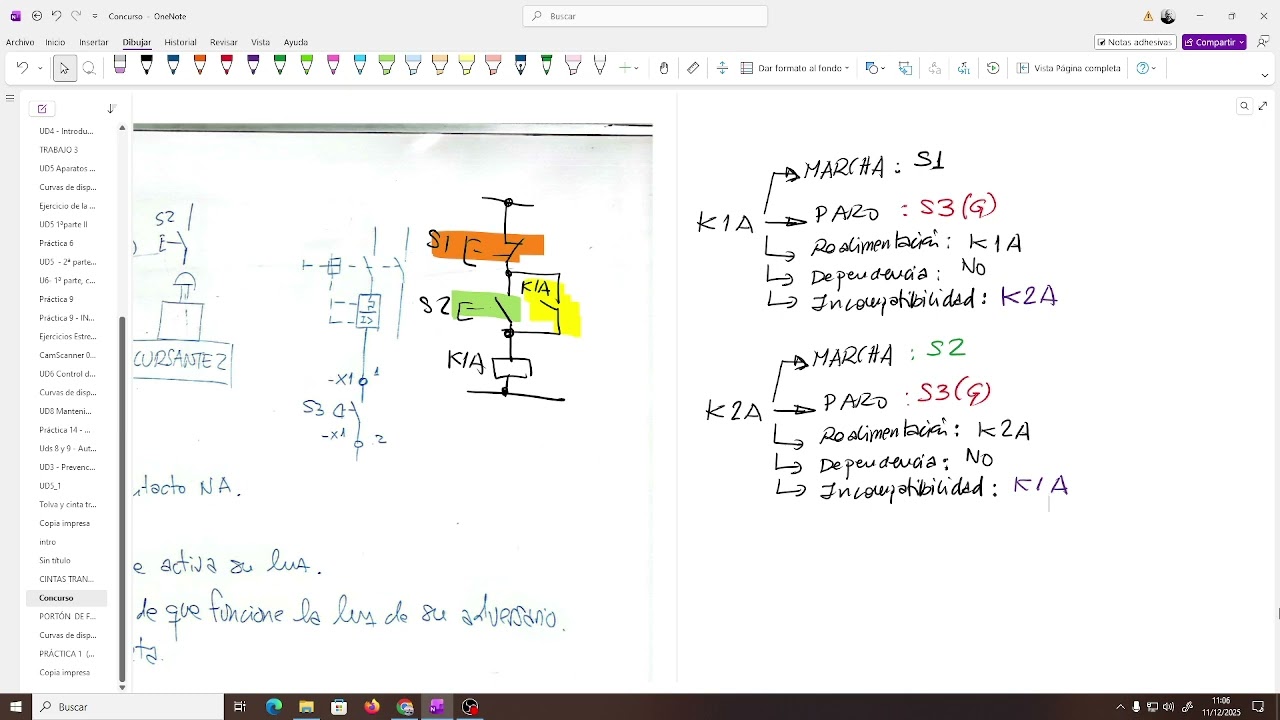 Concurso - OneNote
Buscar
Archivo Inicio Insertar Dibujar Historial Revisar Vista Ayuda
Notas adhesivas
Compartir
Dar formato al fondo
Vista Página completa
UD4 - Introdu...
TRABAJO 3
UD5 Aparatos ...
Curvas de disp...
Ejercicio de la ...
UD5 1ªparte II
Práctica 6
UD5 - 2ª parte...
U6- 1ª parte, c...
Práctica 9
Práctica 9 - IN...
Ejercicios Estre...
CamScanner 0...
UD6 Control d...
Curvas de disp...
UD8 Manteni...
Práctica 14 - ...
Uds 8 y 9 - Aut...
UD3 - Prevenc...
UD5_1
Tolva y cinta tr...
Copia impresa
intro
Sin título
CINTAS TRAN...
Concurso
PORTÓN DE F...
Curvas de disp...
PRÁCTICA 1 (...
Copia impresa
S2
CURSANTE 2
-X1 1
S3
-X1 2
S1
S2
K1A
K1A
tacto NA.
e activa su luz.
de que funcione la luz de su adversario.
ta.
K1A
MARCHA : S1
PARO : S3(G)
Realimentación : K1A
Dependencia : NO
Incompatibilidad : K2A
K2A
MARCHA : S2
PARO : S3(G)
Realimentación : K2A
Dependencia : NO
Incompatibilidad : K1A
Buscar
11:06
11/12/2025